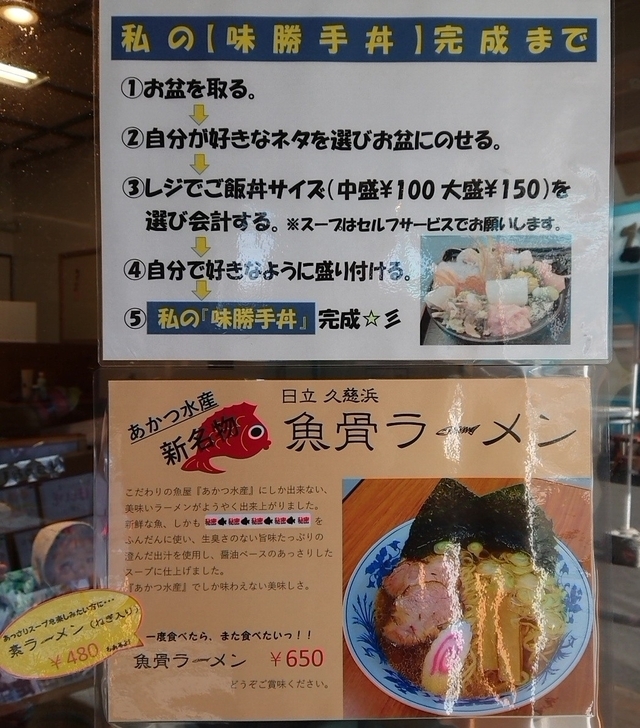 私の【味勝手丼】完成まで
①お盆を取る。
②自分が好きなネタを選びお盆にのせる。
③レジでご飯丼サイズ(中盛¥100 大盛¥150)を
選び会計する。※スープはセルフサービスでお願いします。
④自分で好きなように盛り付ける。
⑤私の『味勝手丼』完成☆彡
あかつ水産
新名物
日立 久慈浜
魚骨ラーメン
こだわりの魚屋『あかつ水産』にしか出来ない、
美味いラーメンがようやく出来上がりました。
新鮮な魚、しかも秘密秘密秘密秘密秘密を
ふんだんに使い、生臭さのない旨味たっぷりの
澄んだ出汁を使用し、醤油ベースのあっさりした
スープに仕上げました。
『あかつ水産』でしか味わえない美味しさ。
一度食べたら、また食べたいっ！！
魚骨ラーメン ¥650
どうぞご賞味ください。
あっさりスープを楽しみたい方に…
素ラーメン(ねぎ入り)
¥480 もあるよ!